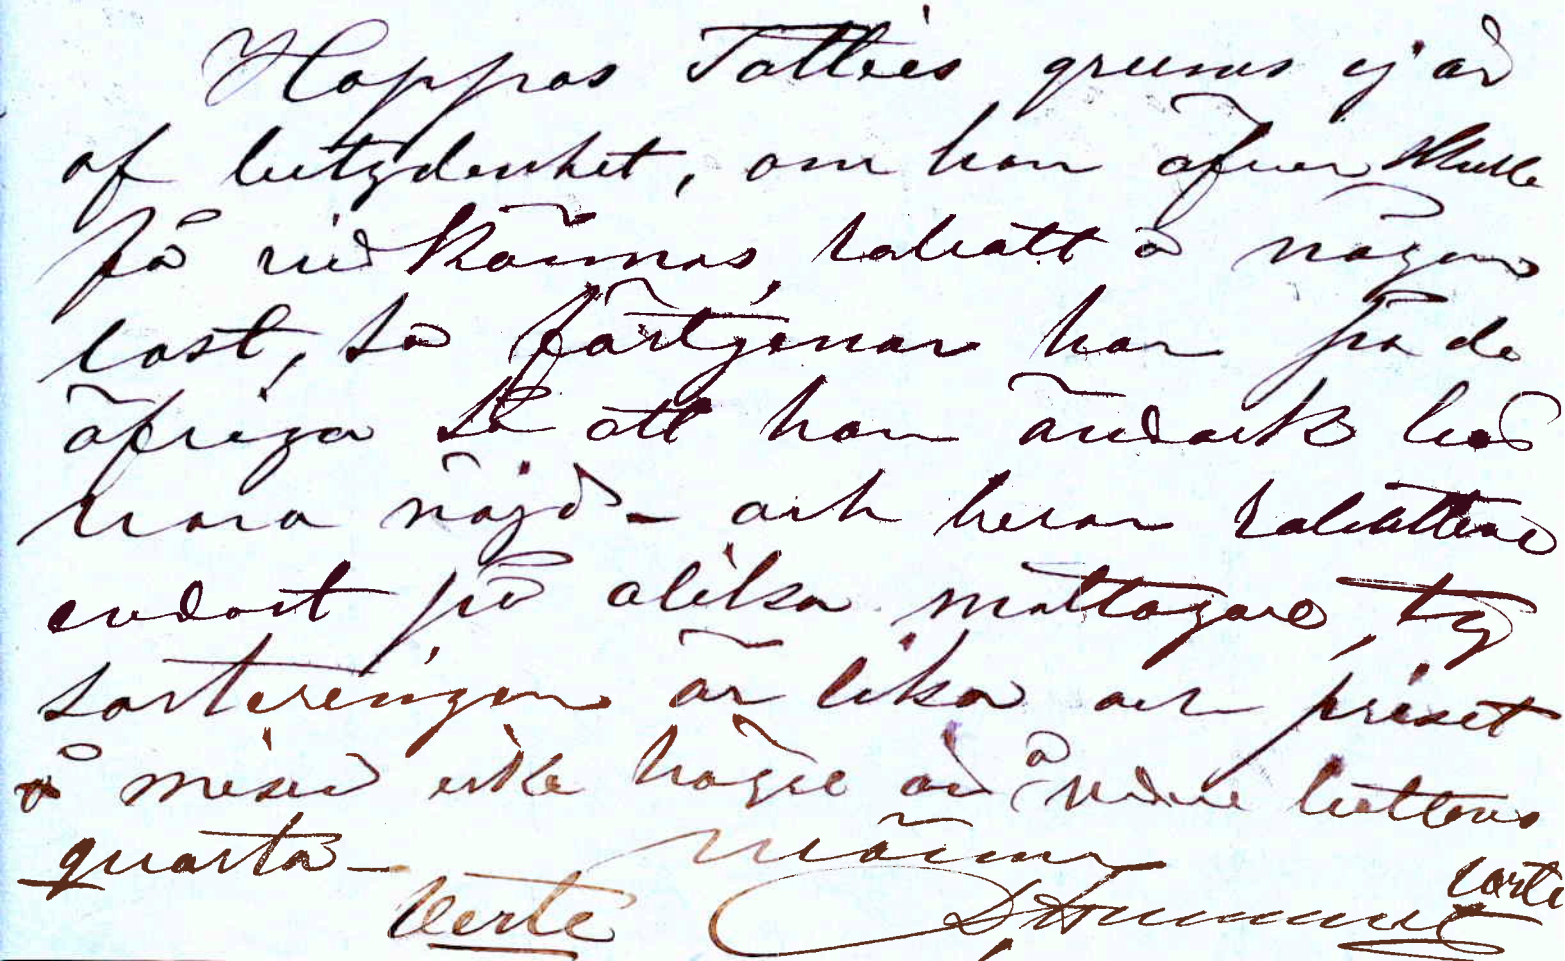 Hoppas Tollies grums ej är
af betydenhet, om han äfven skulle
få vidkännas rabatt å någon
last, så förtjenar han på de
öfriga så att han ändock bör
vara nöjd - och beror rabatterne
endast på olika mottagare, ty
sorteringen är lika och priset
å mixed icke högre än å andre battens
qvarta -
Verte